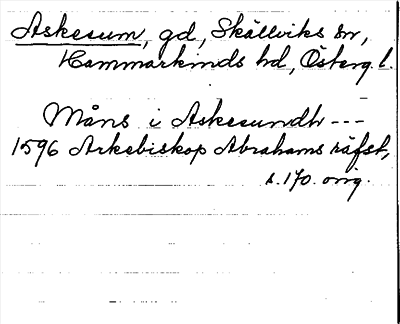 Askesum, gd, Skällviks sn,
Hammarkinds hd, Österg. l.
Måns i Askesundh ---
1596 Ärkebiskop Abrahams räfst,
s. 170. orig.